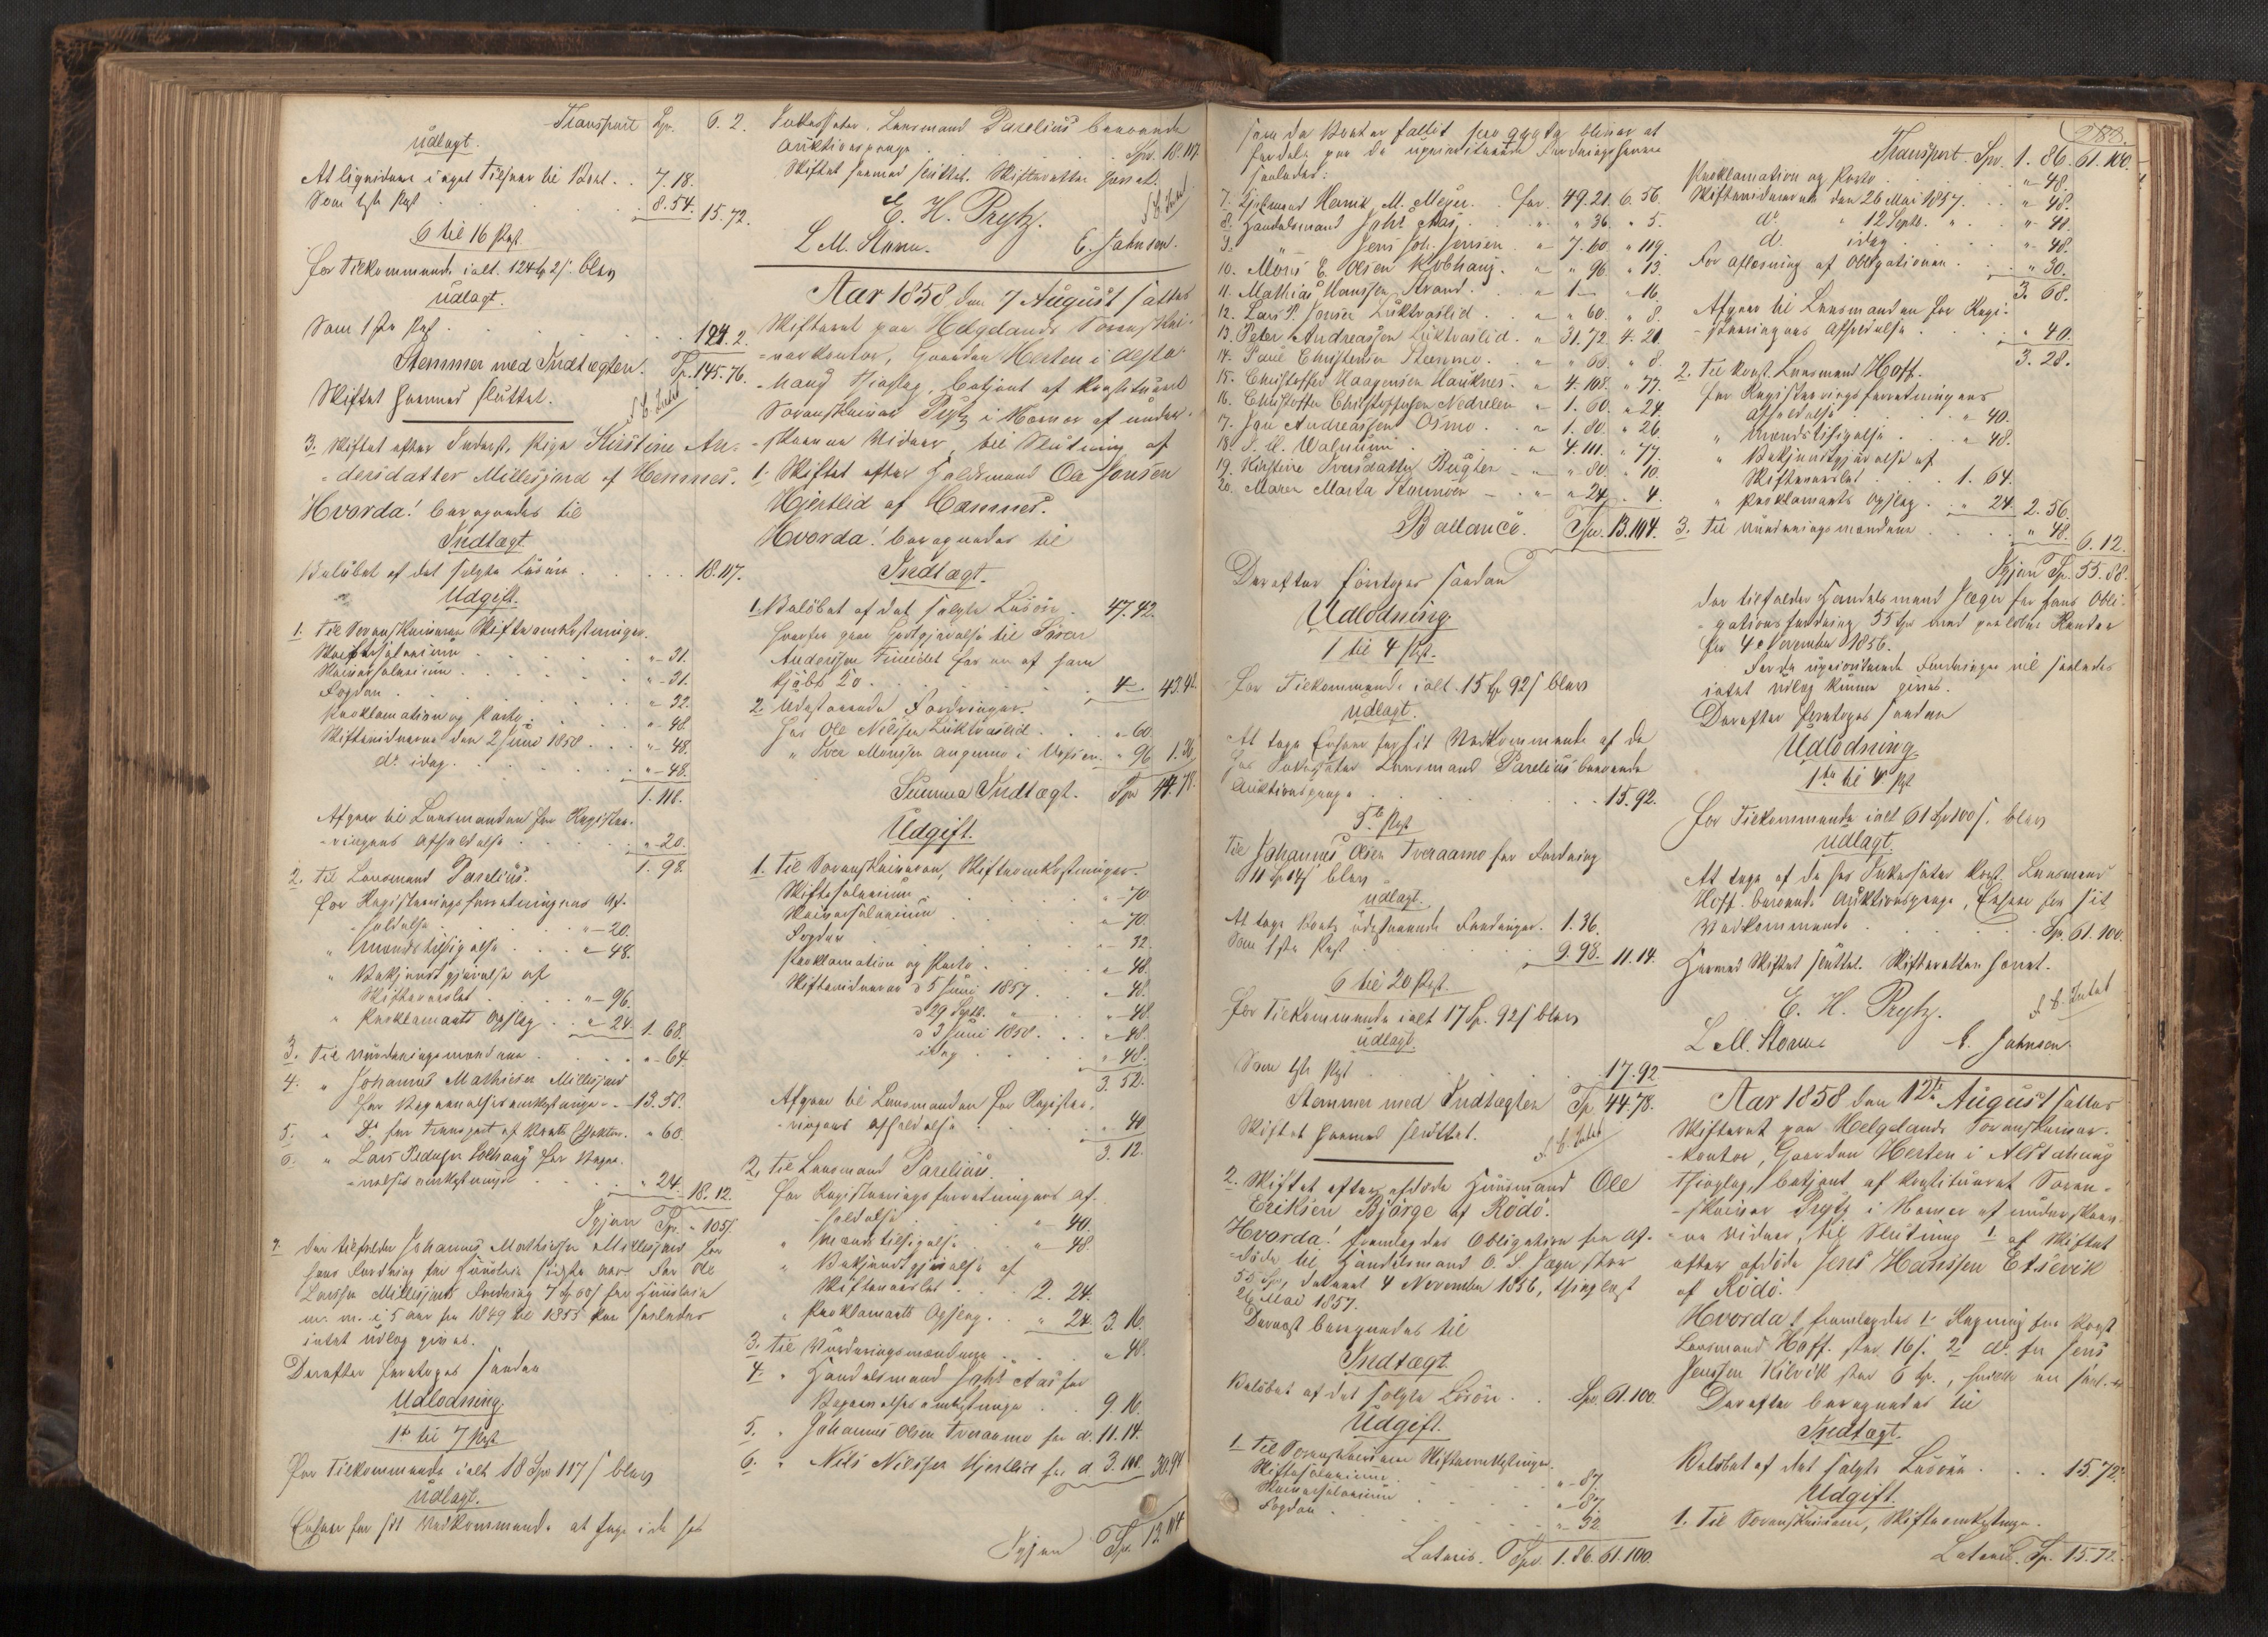 Transport Sp. 6. 2.
udlagt.
At liquidere i eget Tilsvar til Boet . . 7. 18.
Som 1ste Post . . 8. 54. 15. 72.
6 til 16 Post
for Tilkommende ialt 124 Sp 2 s. blev
udlagt.
Som 1ste Post . . 124. 2.
Stemmer med Indtægten. Sp. 145. 76.
Skiftet hermed sluttet.
3. Skiftet efter Inderst, Pige Kirstine An-
dersdatter Millesjord af Hemnes.
Hvorda! beregnedes til
Indtægt
Beløbet af det solgte Løsøre . . . 18. 117.
Udgift.
1. Til Sorenskriveren Skifteomkostninger.
Skiftesalarium . . " - 31.
Skriversalarium . . " - 31.
Fogden . . " 32.
Proklamation og Porto . . " - 48.
Skiftevidnerne den 2 Juni 1858 . . " - 48.
do idag . . " - 48.
1. 118.
Afgaar til Lensmanden for Registe-
ringens Afholdelse . . " - 20.
1. 98.
2. Til Lensmand Parelius.
for Registreringsforretningens Af-
holdelse . . " - 20.
" Mænds tilsigelse . . " - 48.
" Bekjendtgjørelse af
Skifteværket . . " - 96.
" Proklamaets Opslag . . " 24. 1. 68.
3. Til Vurderingsmændene . . " - 64
4. " Johannes Mathiesen Millesjord
for Begravelsesomkostninger . . 13. 58.
5. " Do for Transport af Boets Effekter. " 60.
6. " Lars Pedersen Solhaug for Begra-
velsesomkostninger . . " 24. 18. 12.
Igjen Sp. " 105 s.
7. Der tilfalder Johannes Mathiesen Millesjord for
hans Fordring for Huusleie sidste Aar. For Ole
Larssen Millesjords Fordring 7 Sp 60 s for Huusleie
m. m. i 5 Aar fra 1849 til 1855 kan saaledes
intet udlæg gives.
Derefter foretoges saadan
Udlodning.
1ste til 7 Post
for Tilkommende ialt 18 Spd 117 s blev
udlagt.
Enhver for sit Vedkommende at tage i de hos
Inkassator Lensmand Parelius beroende
Auktionspenge . . Spd. 18. 117
Skiftet hermed sluttet. Skifteretten hævet.
E. H. Prytz.
L M. Storm. E. Johnsen.
Aar 1858 den 7 August sattes
Skifteret paa Helgelands Sorenskri-
verkontor, Gaarden Herten i Alsta-
haug Thinglag, betjent af konstitueret
Sorenskriver Prytz i Nærvær af under-
skrevne Vidner, til Slutning af
1. Skiftet efter Huusmand Ole Jonsen
Hjertlid af Hemnes.
Hvorda! beregnedes til
Indtægt.
1. Beløbet af det solgte Løsøre . 47. 42.
hvorfra gaar Godtgjørelse til Søren
Anderssen Fineidet for en af ham
kjøbt Ko . . 4 - 43. 42.
2. Udestaaende Fordringer.
hos Ole Nilssen Luktvaslid . . " - 60.
" Iver Monsen Angermo i Vefsen . " 96 1. 36
Summa Indtægt. Spd 44. 78.
Udgift.
1. Til Sorenskriveren, Skifteomkostninger.
Skiftesalarium . . " - 70
Skriversalarium . . " 70.
Fogden . . " - 32.
Proklamation og Porto . . " 48.
Skiftevidnerne d 5 Juni 1857 . . " - 48.
d 29 Septb. " . . " - 48.
d 3 Juni 1858. . . " - 48.
idag . . " 48.
3. 52.
Afgaar til Lensmanden for Registe-
ringens Afholdelse . . " 40
3. 12.
2. Til Lensmand Parelius.
for Registreringsforretningens Af-
holdelse . . " 40.
" Mænds tilsigelse . . " 48.
" Bekjendtgjørelse af
Skifteværket . . 2. 24.
" Proklamaets Opslag . . " 24. 3. 16.
3. Til Vurderingsmændene . . " 48.
4. " Handelsmand Johs Aas for
Begravelsesomkostninger . . 9 16.
5. " Johannes Olsen Tveraamo for do. 11. 14.
6. " Nils Nilssen Hjertlid for d 3. 108. 30. 94
Igjen Sp. 13 104
som da Boet er fallit bliver at
fordele paa de uprioriterede Fordringshavere
saaledes:
7. Kjøbmand Henrik M. Meyer. . for 49. 21. 6. 56.
8. Handelsmand Johs Aas. . . " " 36. " 5.
9. " Jens Joh. Jensen . " 7. 60. " 119.
10. Mons E. Olsen Kobhaug. . " " 96. " 13.
11. Mathias Hanssen Strand. . " 1 - " 16.
12. Lars P. Jonsen Luktvaslid. . " " 60. " 8.
13. Peter Andreassen Luktvaslid. " 31. 72. 4. 21.
14. Paul Christensen Stenmo. . " " 60. " 8.
15. Christoffer Haagensen Hauknes. . " 4. 108. " 77.
16. Christoffer Christoffersen Nedrelen " 1. 60. " 24.
17. Jon Andreassen Osmo. . " 1. 80. " 26.
18. J. C. Walnum . . " 4. 111. " 77.
19. Kirstine Iversdatter Bugten . " " 80. " 10.
20. Maren Marta Stormoen . . " " 24. . 4.
Ballance. Spd. 13. 104.
Derefter foretoges saadan
Udlodning
1 til 4 Post.
for Tilkommende ialt 15 Sp 92 s blev
udlagt.
At tage Enhver for sit Vedkommende af de
hos Inkassator Lensmand Parelius beroende
Auktionspenge . . 15. 92.
5te Post
Til Johannes Olsen Tveraamo for Fordring
11 Sp 14 s blev
udlagt.
At tage Boets udestaaende Fordringer. 1. 36.
Som 1ste Post . . 9. 98. 11. 14.
6 til 20 Post.
for Tilkommende ialt 17 Sp. 92 s blev
udlagt.
Som 1ste Post . . 17. 92
Stemmer med Indtægten Sp. 44. 78.
Skiftet hermed sluttet.
2. Skiftet efter afdøde Huusmand Ole
Eriksen Bjørge af Rødø.
Hvorda! fremlagdes Obligation fra Af-
døde til Handelsmand O. S. Jæger stor
55 Sp, dateret 4 November 1856, thinglæst
26 Mai 1857.
Dernæst beregnedes til
Indtægt.
Beløbet af det solgte Løsøre . . Spd. 61. 100.
Udgift.
1. Til Sorenskriveren Skifteomkostninger.
Skiftesalarium . . " - 87.
Skriversalarium . . " - 87.
Fogden . . " - 32
Lateris. Spd. 1. 86. 61. 100.
283.
Transport. Spd. 1. 86. 61. 100.
Proklamation og Porto . . " - 48.
Skiftevidnerne den 26 Mai 1857. . . " - 48.
do " 12 Septb. " . . " - 48.
do idag . . " - 48.
For Aflæsning af Obligationen . . " 30.
3. 68.
Afgaar til Lensmanden for Regi-
streringens Afholdelse . . " 40
3. 28.
2. Til konst. Lensmand Hoff.
for Registreringsforretningens
Afholdelse . . " 40.
" Mændstilsigelse . . " 48.
" Bekjendtgjørelse af
Skifteværket . . 1. 64.
" Proklamaets Opslag . . " 24. 2. 56.
3. Til Vurderingsmændene . . " 48. 6. 12.
Igjen Sp. 55. 88.
der tilfalder Handelsmand Jæger for hans Obli-
gationsfordring 55 Sp med paaløbne Renter
fra 4 November 1856.
For de uprioriterede Fordringer vil saaledes
intet Udlæg kunne gives.
Derefter foretoges saadan
Udlodning.
1ste til 4 Post
for Tilkommende ialt 61 Sp 100 s. blev
udlagt.
At tage af de hos Inkassator konst. Lensmand
Hoff beroende Auktionspenge, Enhver for sit
Vedkommende . . Sp. 61. 100.
Hermed Skiftet sluttet. Skifteretten hævet.
E. H. Prytz.
L M. Storm E. Johnsen
Aar 1858 den 12te August sattes
Skifteret paa Helgelands Sorenskriver-
kontor, Gaarden Herten i Alstahaug
Thinglag, betjent af konstitueret Soren-
skriver Prytz i Nærvær af underskrev-
ne Vidner, til Slutning 1. af Skiftet
efter afdøde Jens Hanssen Etsevik
af Rødø.
Hvorda! fremlagdes 1. Regning fra konst
Lensmand Hoff. stor 16 s. 2. do. fra Jens
Jenssen Kilvik stor 6 Sp.,
Derefter beregnedes til
Indtægt.
Beløbet af det solgte Løsøre . . . 15. 72.
Udgift.
1. Til Sorenskriveren, Skifteomkostninger.
Lateris. Sp. 15. 72.